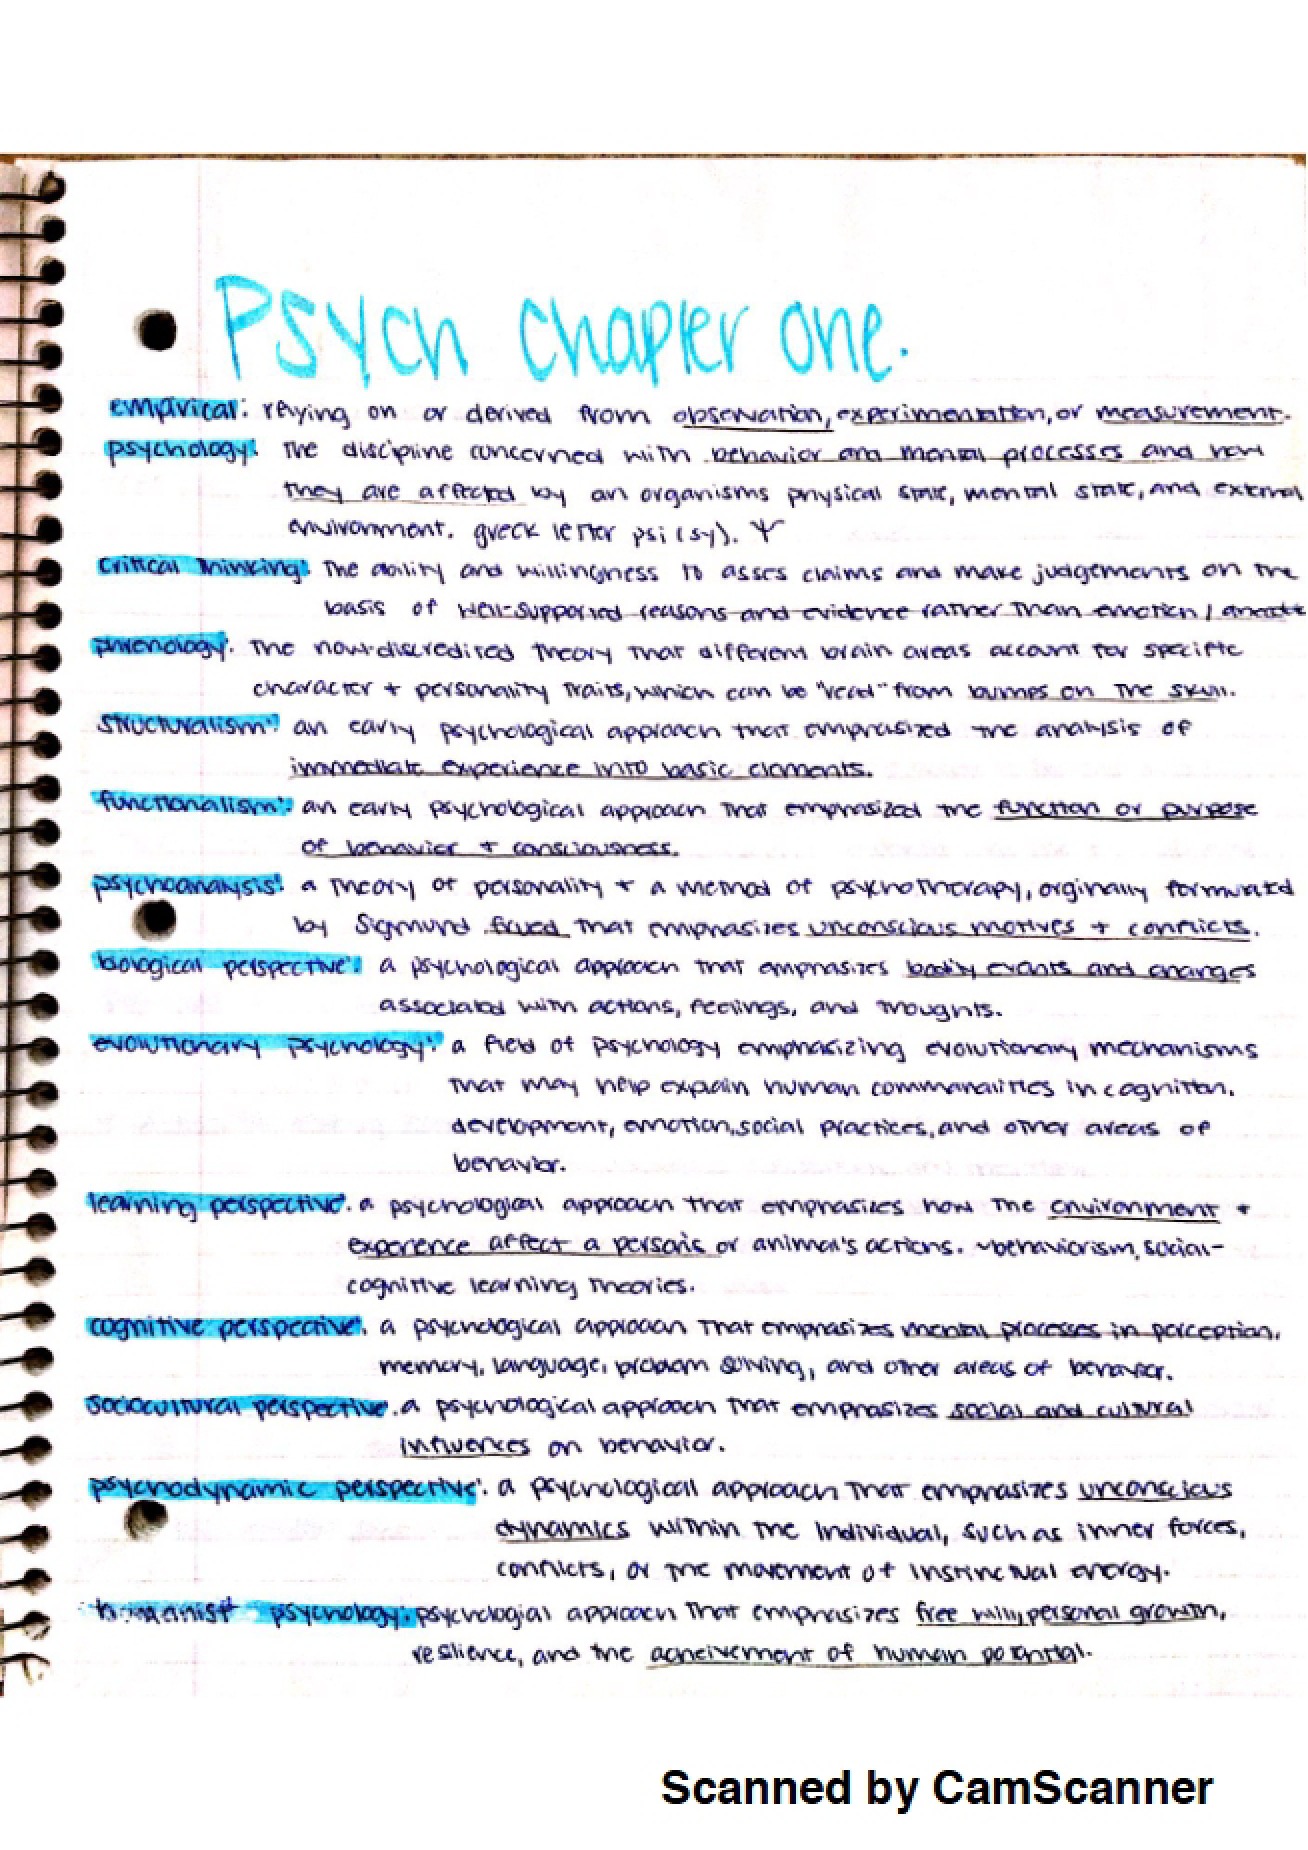 Psych Chapter one.
empirical: relying on or derived from observation, experimentation, or measurement.
psychology: The discipline concerned with behavior and mental processes and how
they are affected by an organisms physical state, mental state, and external
environment. greek letter psi (sy). Ψ
critical thinking: The ability and willingness to asses claims and make judgements on the
basis of well-supported reasons and evidence rather than emotion /
phrenology: The now-discredited theory that different brain areas account for specific
character + personality traits, which can be "read" from bumps on the skull.
structuralism: an early psychological approach that emphasized the analysis of
immediate experience into basic elements.
functionalism: an early psychological approach that emphasized the function or purpose
of behavior + consciousness.
psychoanalysis: a theory of personality + a method of psychotherapy, orginally formulated
by Sigmund that emphasizes unconscious motives + conflicts.
biological perspective: a psychological approach that emphasizes bodily events and changes
associated with actions, feelings, and thoughts.
evolutionary psychology: a field of psychology emphasizing evolutionary mechanisms
that may help explain human commonalities in cognition,
development, emotion, social practices, and other areas of
behavior.
learning perspective: a psychological approach that emphasizes how the environment +
experience affect a persons or animal's actions. ~behaviorism, social-
cognitive learning theories.
cognitive perspective: a psychological approach that emphasizes mental processes in perception,
memory, language, problem solving, and other areas of behavior.
sociocultural perspective: a psychological approach that emphasizes social and cultural
influences on behavior.
psychodynamic perspective: a psychological approach that emphasizes unconscious
dynamics within the individual, such as inner forces,
conflicts, or the movement of instinctual energy.
humanist psychology: psychological approach that emphasizes free will, personal growth,
resilience, and the acheivement of human potential.
Scanned by CamScanner